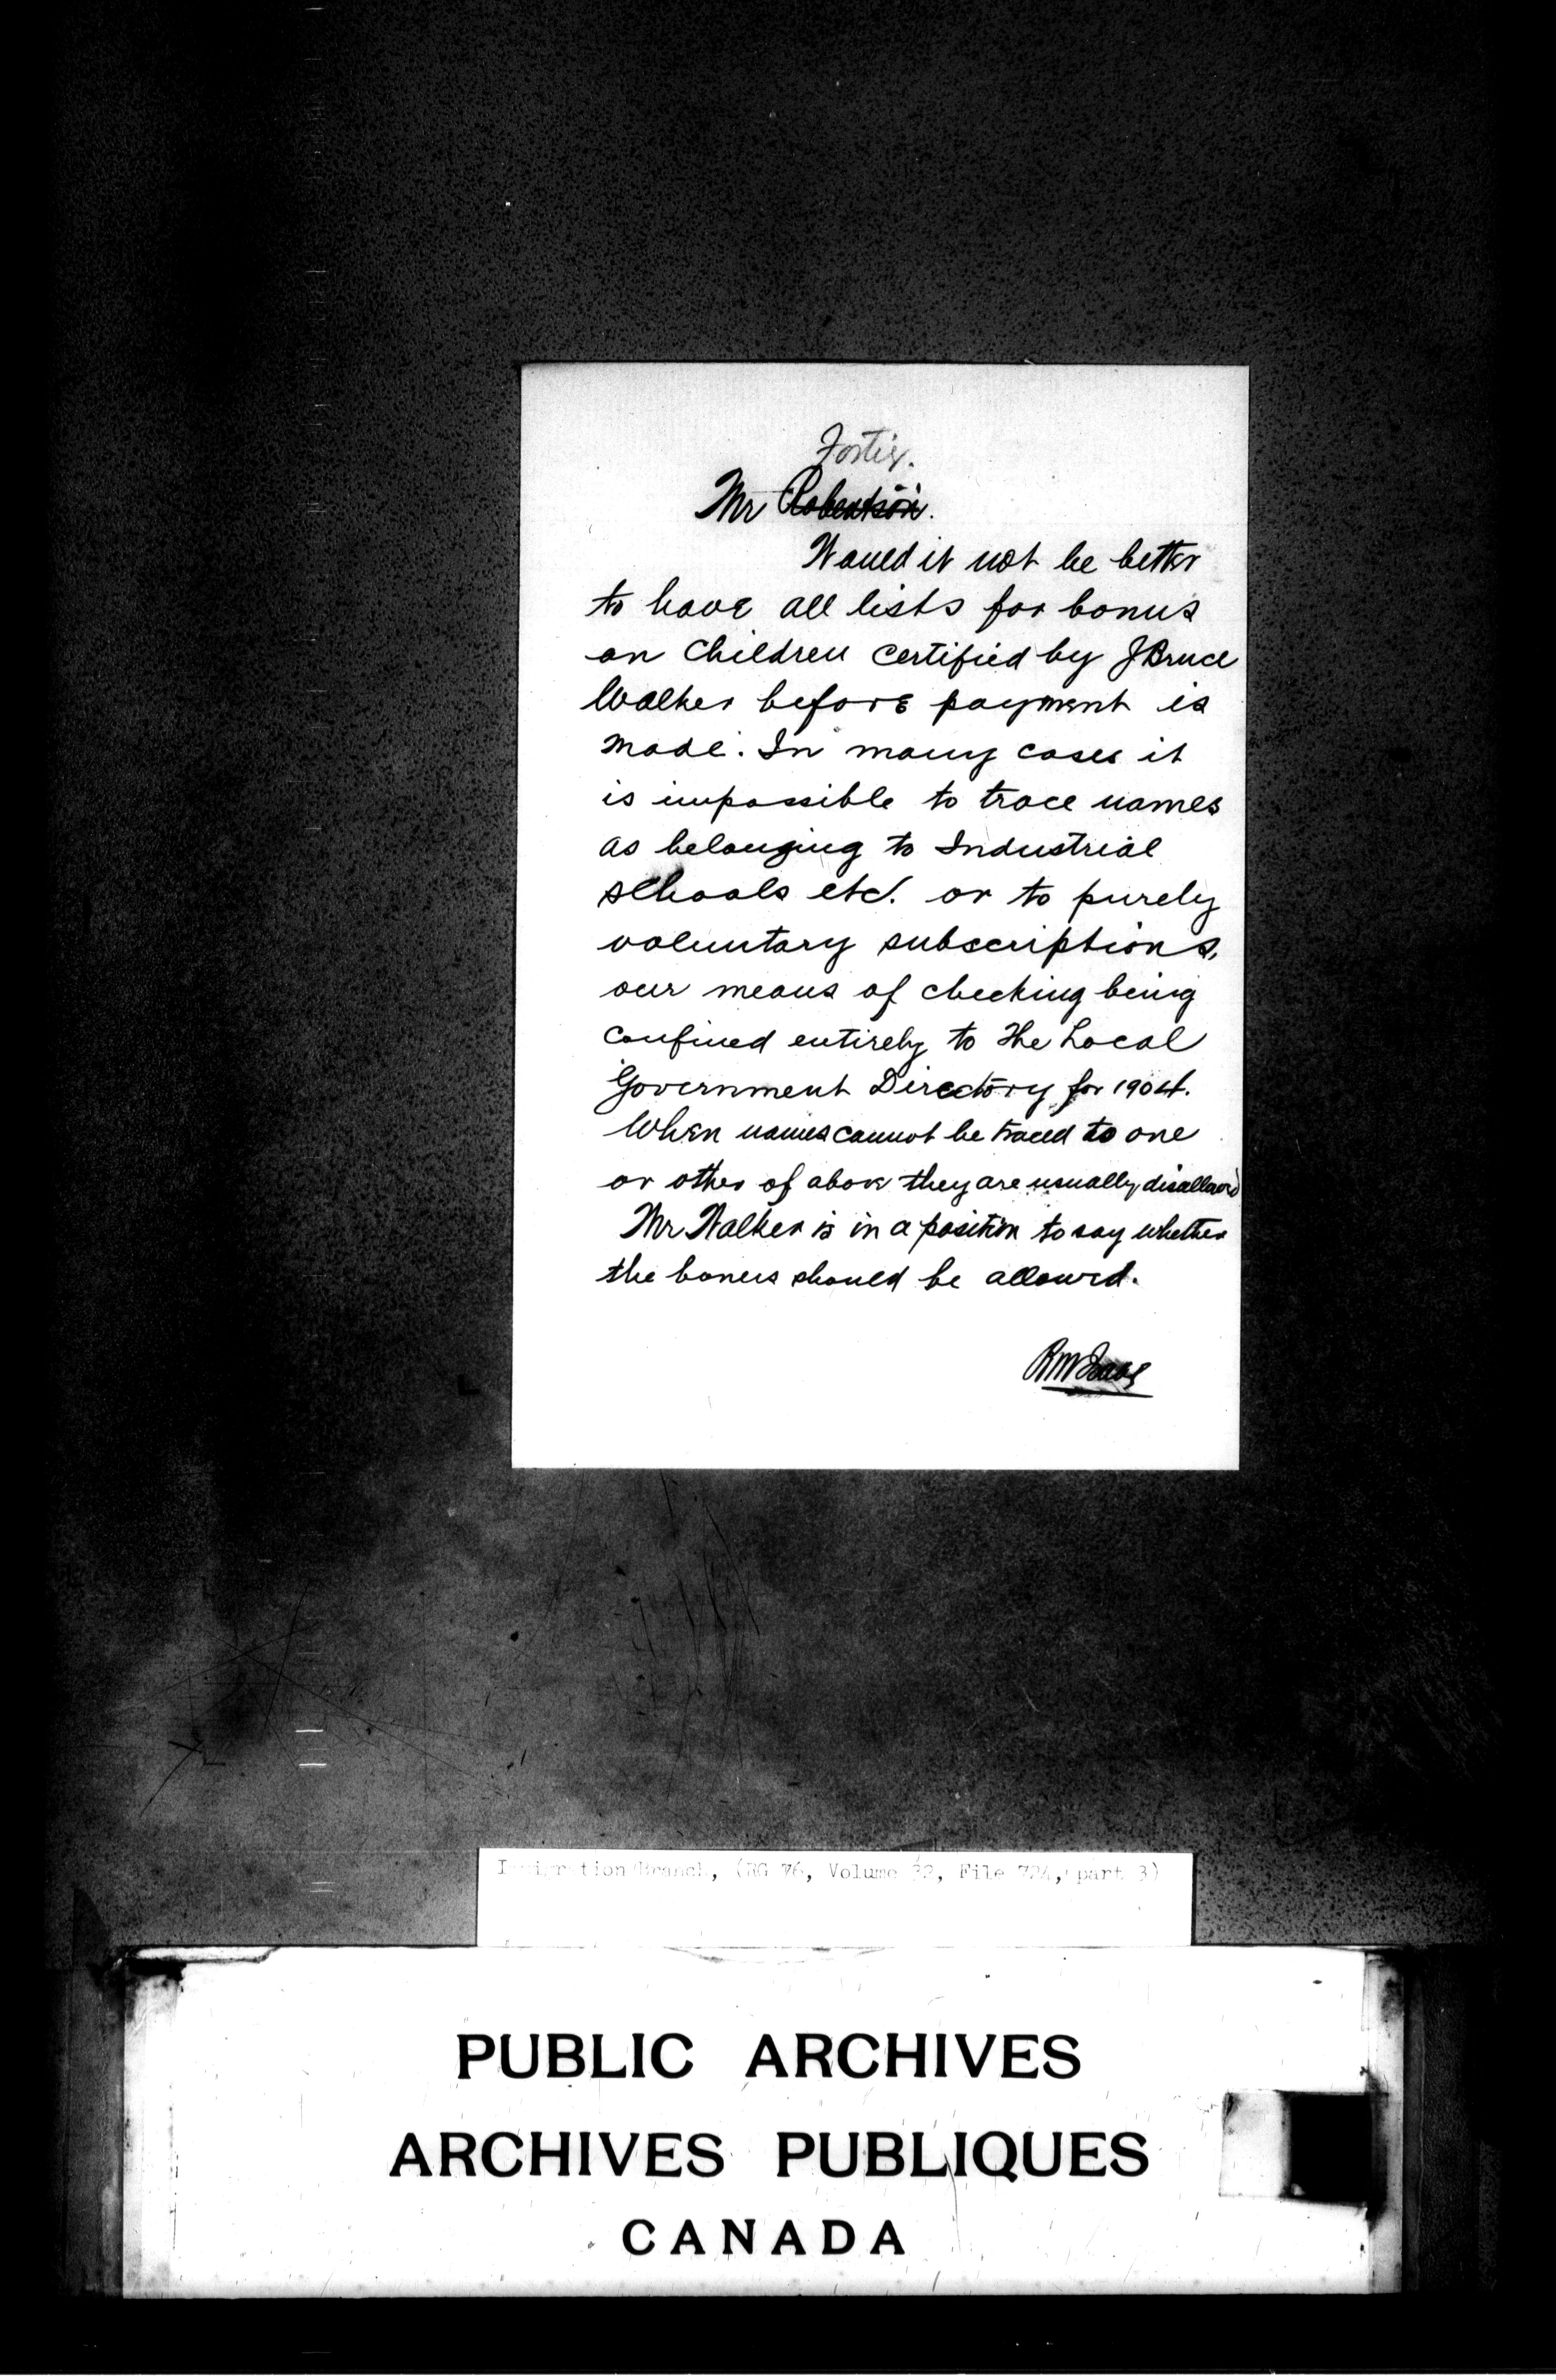 Fortier.
Mr Robertson.
Would it not be better
to have all lists for bonus
on children certified by J Bruce
Walker before payment is
made. In many cases it
is impossible to trace names
as belonging to Industrial
schools etc. or to purely
voluntary subscriptions,
our means of checking being
confined entirely to the Local
Government Directory for 1904.
When names cannot be traced to one
or other of above they are usually disallowed
Mr Walker is in a position to say whether
the bonus should be allowed.
Immigration Branch, (RG 76, Volume 32, File 724, part 3)
PUBLIC ARCHIVES
ARCHIVES PUBLIQUES
CANADA